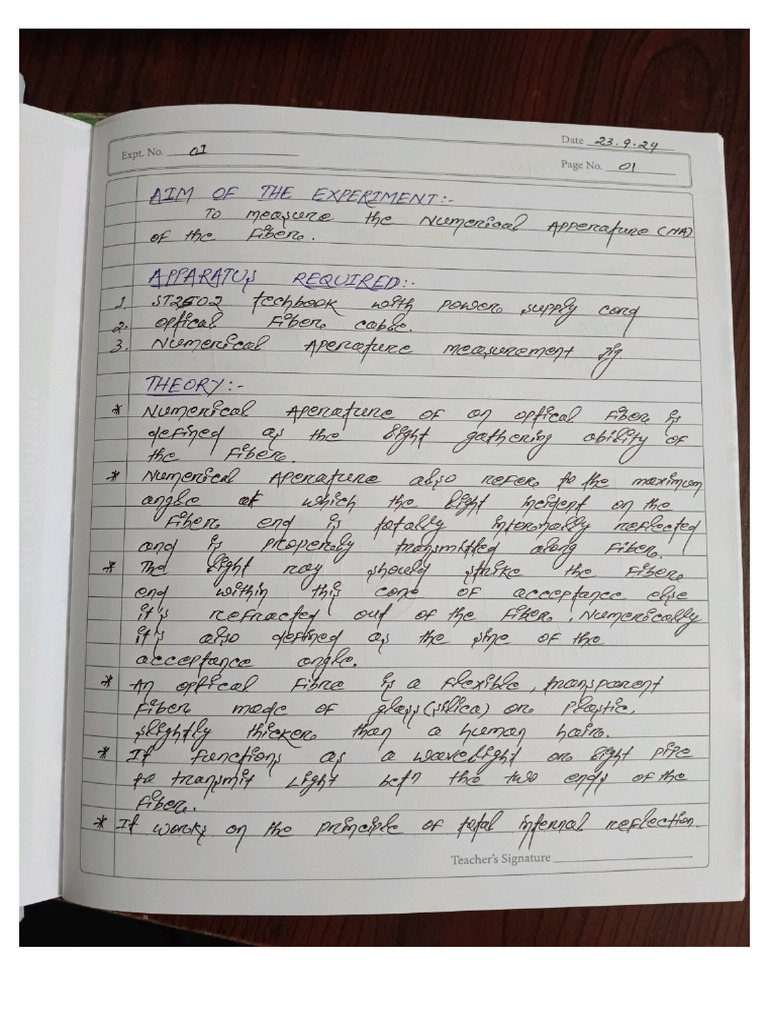 Date 23.9.24
Expt. No. 01
Page No. 01
AIM OF THE EXPERIMENT:-
To measure the Numerical Apperature (NA)
of the Fiber.
APPARATUS REQUIRED:-
1. ST2502 techbook with power supply cord
2. optical Fiber cable.
3. Numerical Aperature measurement jig.
THEORY:-
* Numerical Aperature of an optical Fiber is
defined as the light gathering ability of
the Fiber.
* Numerical Aperature also refer to the maximum
angle at which the light incident on the
Fiber end is totally internally reflected
and is properly transmitted along Fiber.
* The light ray should strike the Fiber
end within this cone of acceptance else
it's refracted out of the Fiber, Numerically
it's also defined as the sine of the
acceptance angle.
* An optical Fibre is a flexible, transparent
Fiber made of glass (silica) or Plastic,
slightly thicker than a human hair.
* It functions as a wavelight or light pipe
to transmit Light betn the two ends of the
Fiber.
* It works on the principle of total internal reflection.
Teacher's Signature